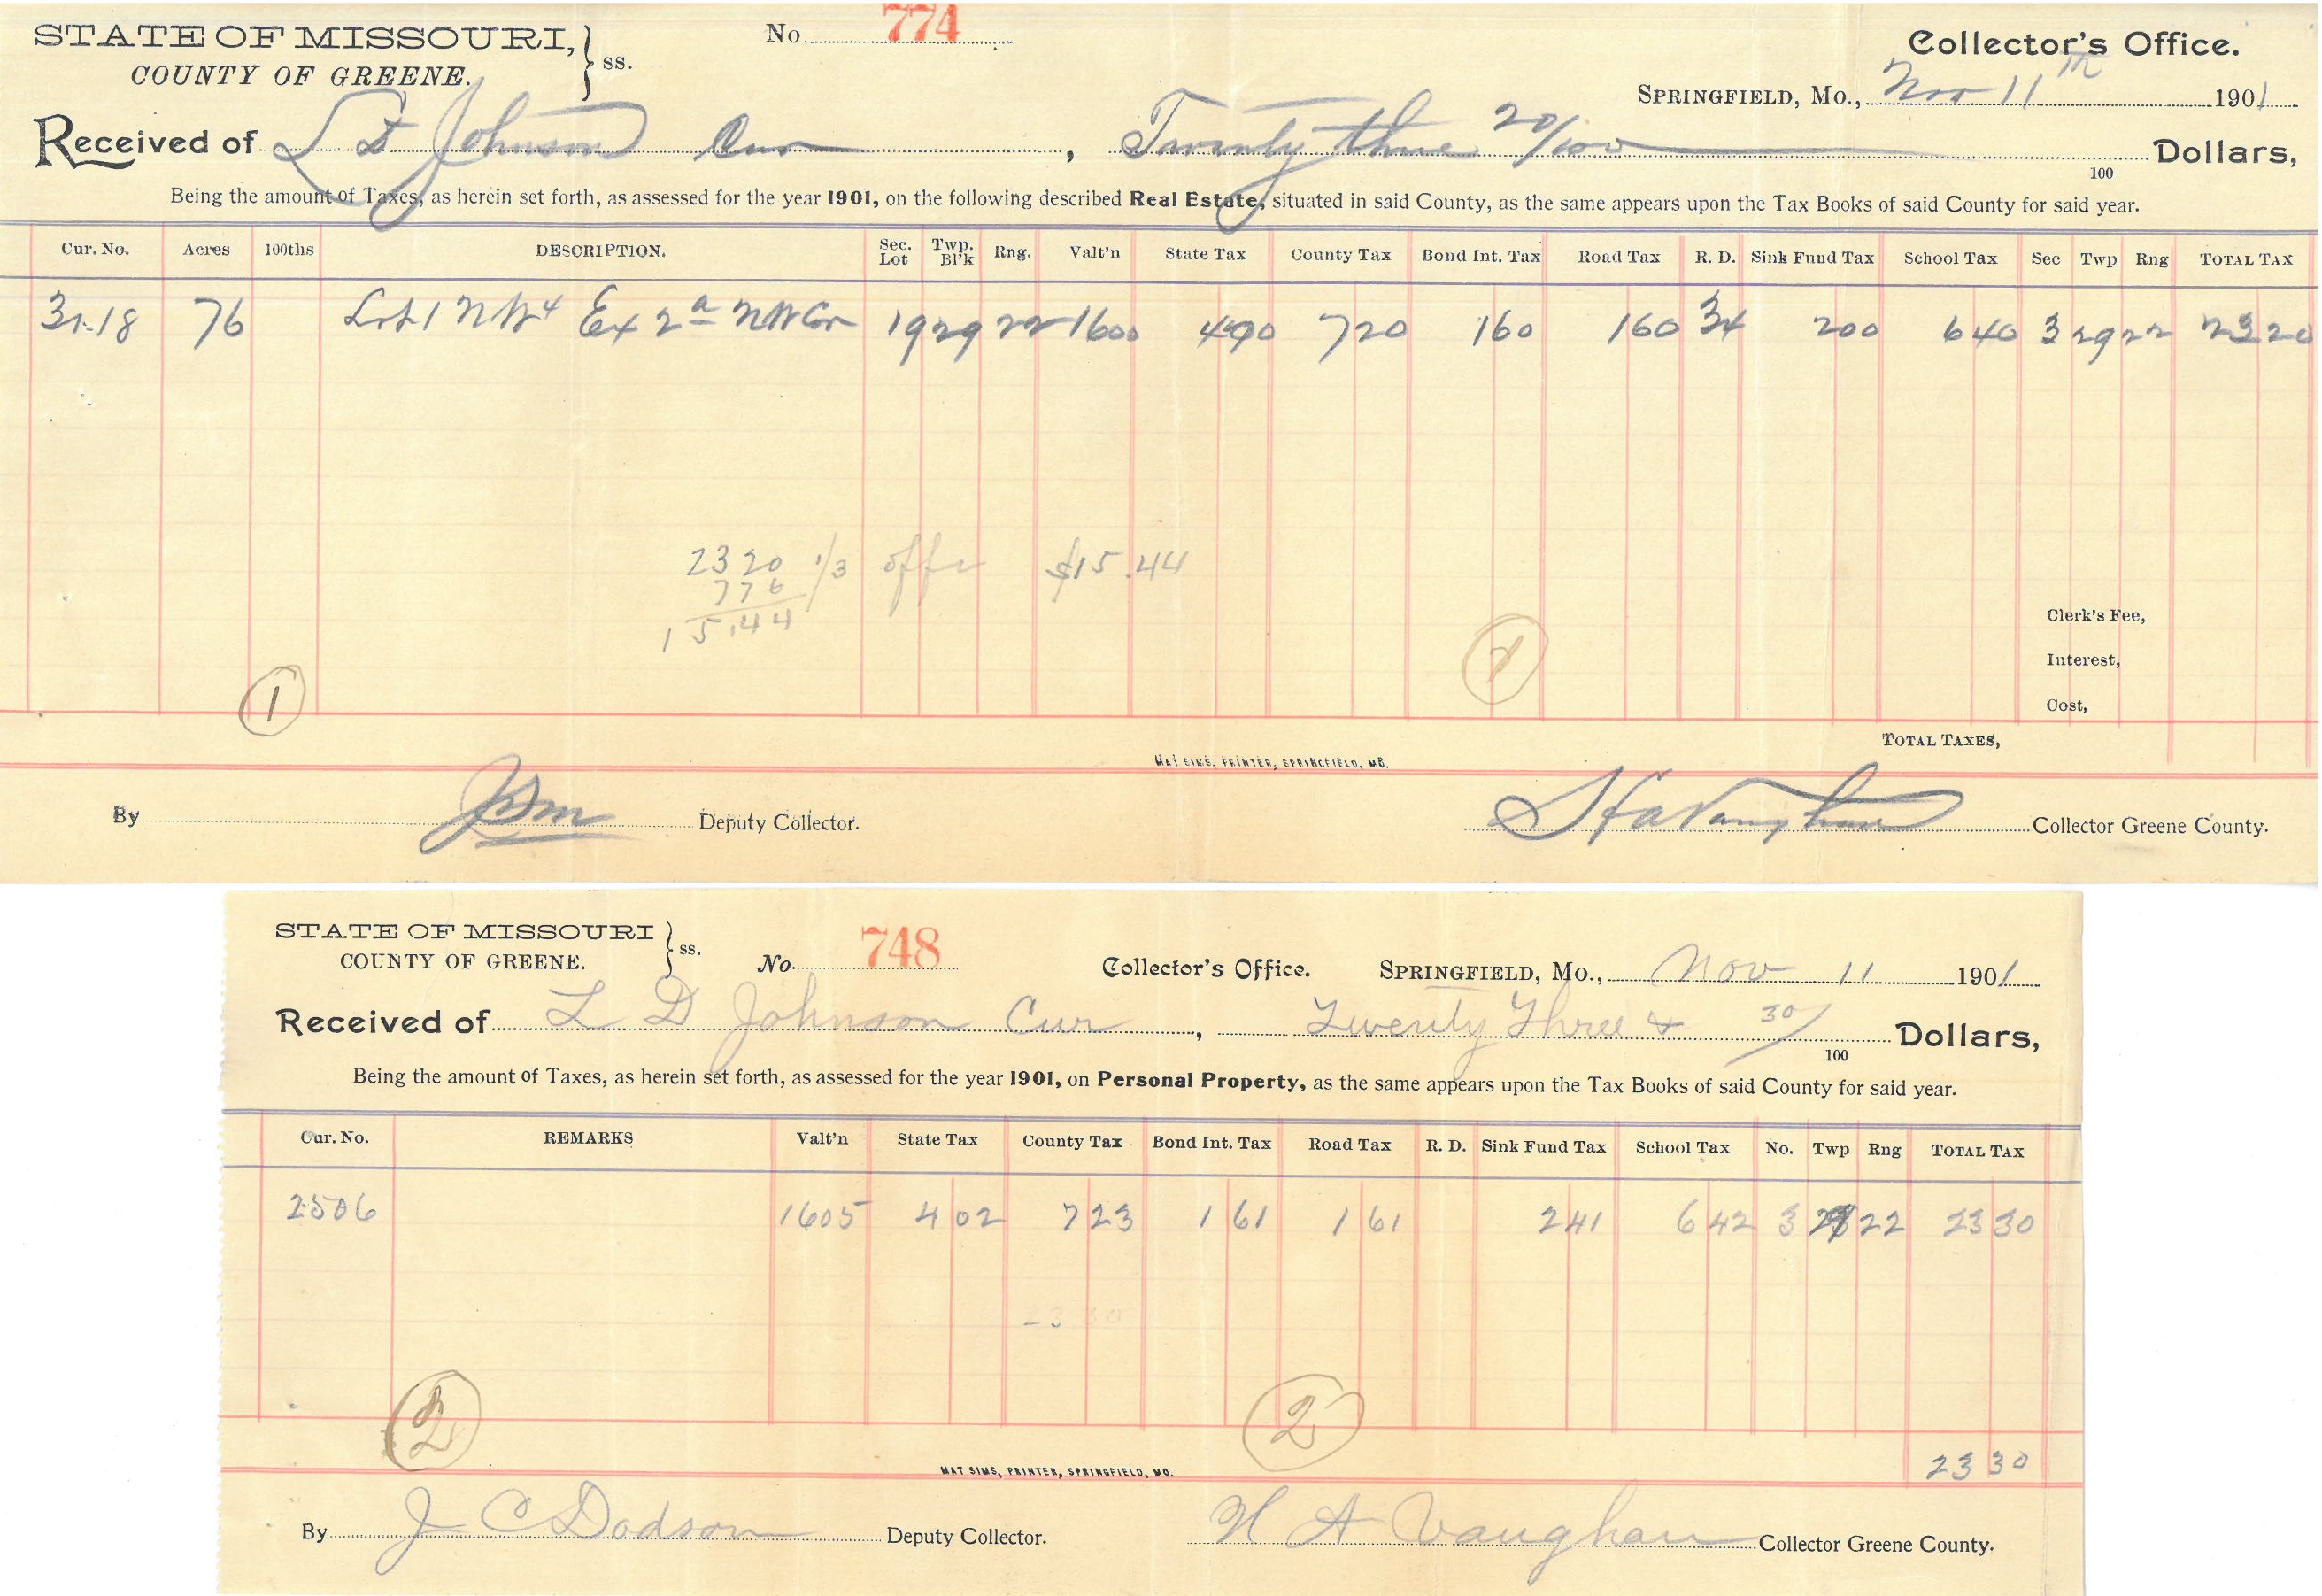 STATE OF MISSOURI, } ss. No. 774 Collector's Office.
COUNTY OF GREENE. SPRINGFIELD, Mo., Nov 11th 1901
Received of L D Johnson Cur , Twenty three 20/100 Dollars,
100
Being the amount of Taxes, as herein set forth, as assessed for the year 1901, on the following described Real Estate, situated in said County, as the same appears upon the Tax Books of said County for said year.
Cur. No. Acres 100ths DESCRIPTION. Sec. Lot Twp. Bl'k Rng. Valt'n State Tax County Tax Bond Int. Tax Road Tax R. D. Sink Fund Tax School Tax Sec Twp Rng TOTAL TAX
3118 76 Lot 1 NW4 Ex 2a NW Cor 19 29 22 1600 400 720 160 160 34 200 640 3 29 22 23 20
2320 1/3 off $15.44
776
15.44
Clerk's Fee,
Interest,
1
Cost,
TOTAL TAXES,
MAT SIMS, PRINTER, SPRINGFIELD, MO.
By Deputy Collector. H A Vaughan Collector Greene County.
STATE OF MISSOURI } ss. No. 748 Collector's Office. SPRINGFIELD, Mo., Nov 11 1901
COUNTY OF GREENE.
Received of L D Johnson Cur , Twenty Three & 30/100 Dollars,
Being the amount of Taxes, as herein set forth, as assessed for the year 1901, on Personal Property, as the same appears upon the Tax Books of said County for said year.
Cur. No. REMARKS Valt'n State Tax County Tax Bond Int. Tax Road Tax R. D. Sink Fund Tax School Tax No. Twp Rng TOTAL TAX
2506 1605 4 02 7 23 1 61 1 61 2 41 6 42 3 29 22 23 30
2 2
23 30
MAT SIMS, PRINTER, SPRINGFIELD, MO.
By J C Dodson Deputy Collector. H A Vaughan Collector Greene County.